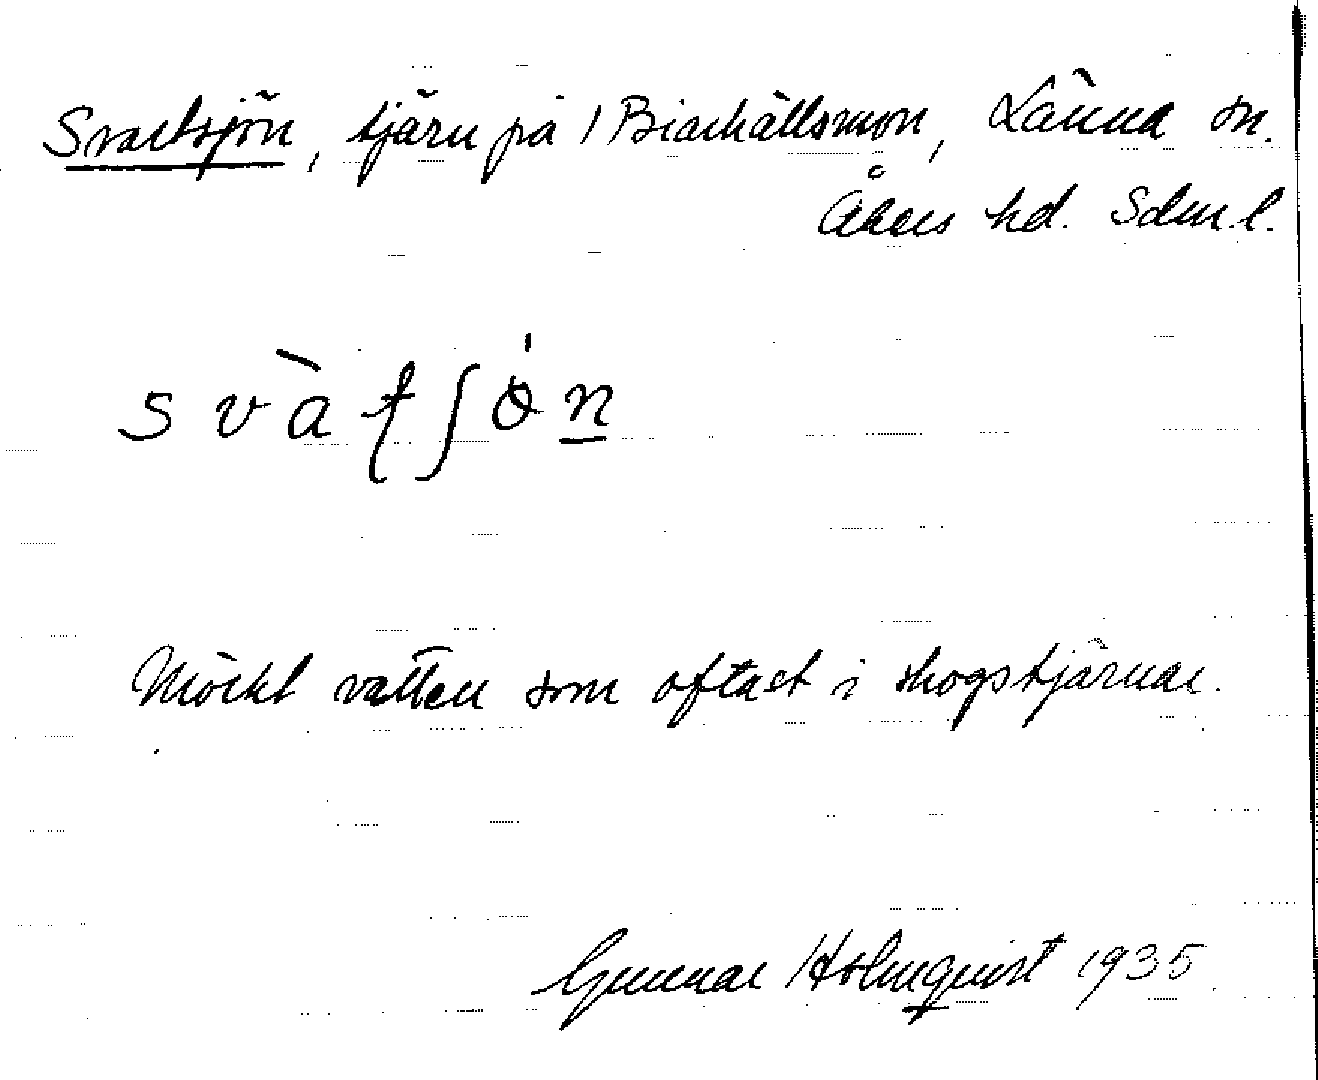 Svartsjön, tjärn på Biarhällsmon, Länna sn.
Åkers hd. Sdm.l.
svàʈʃө̇n
Mörkt vatten som oftast i skogstjärnar.
Gunnar Holmquist 1935